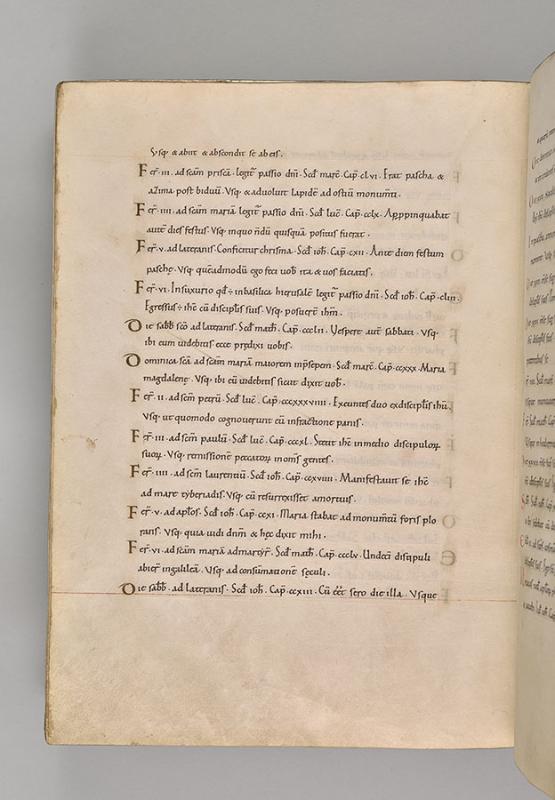 Vsq; & abiit & abscondit se ab eis.
Fer̄. iii. ad scam̄ priscā. legit̄ passio dnī. Scd̄ marc̄. Cap̄. clvi. Erat pascha &
azima post biduū. Vsq; & aduoluit lapidē ad ostiū monumti.
Fer̄. iiii. ad scam̄ mariā. legit̄ passio dnī. Scd̄ luc̄. Cap̄. cclx. Appropinquabat
aute dies festus. Vsq; in quo n̄dū quisquā positus fuerat.
Fer̄. v. ad lateranis. Conficitur chrisma. Scd̄ ioh̄. Cap̄. cxii. Ante diem festum
paschę. Vsq; quēadmodū ego feci uob̄ ita & uos faciatis.
Fer̄. vi. In suxurio qd̄ ÷ in basilica hierusalē legit̄ passio dnī. Scd̄ ioh̄. Cap̄. clm.
Egressus ÷ ihc̄ cū discipłis suis. Vsq; posuert̄ ihm̄.
Die sabb̄ scō ad lateranis. Scd̄ math̄. Cap̄. ccclii. Vespere autē sabbati. Vsq;
ibi eum uidebitis ecce prędixi uobis.
Dominica scā ad scam̄ mariā maiorem in pręsepem. Scd̄ marc̄. Cap̄. ccxxx. Maria
magdalene. Vsq; ibi eū uidebitis sicut dixit uob̄.
Fer̄. ii. ad scm̄ petrū. Scd̄ luc̄. Cap̄. cccxxxviiii. Exeuntes duo ex discipłis ihu.
Vsq; ut quomodo cognouerunt eū in fractione panis.
Fer̄. iii. ad scm̄ paulū. Scd̄ luc̄. Cap̄. cccxl. Stetit ihc̄ in medio discipuloꝝ
suoꝝ. Vsq; remissionē peccatoꝝ in om̄s gentes.
Fer̄. iiii. ad scm̄ laurentiū. Scd̄ ioh̄. Cap̄. ccxviiii. Manifestauit se ihc̄
ad mare tyberiadis. Vsq; cū resurrexisset a mortuis.
Fer̄. v. ad apłos. Scd̄ ioh̄. Cap̄. ccxi. Maria stabat ad monumtū foris plo
rans. Vsq; quia uidi dnm̄ & hęc dixit mihi.
Fer̄. vi. ad scam̄ mariā ad martyr̄. Scd̄ math̄. Cap̄. ccclv. Undeci discipuli
abiert̄ in galileā. Vsq; ad consumationē sęculi.
Die sabb̄. ad lateranis. Scd̄ ioh̄. Cap̄. ccxiii. Cū eet̄ sero die illa. Vsque